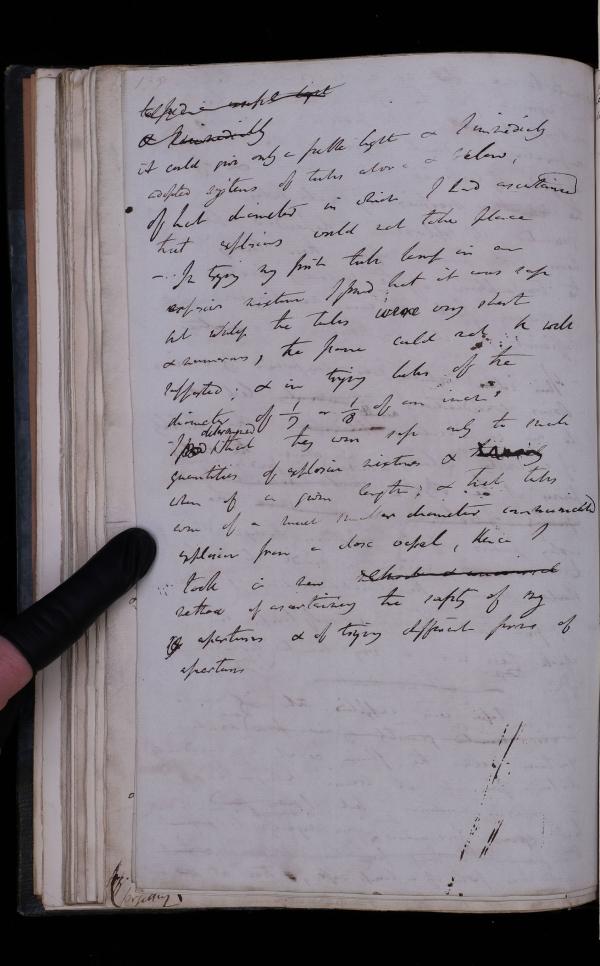 & immediately
it could give only a feeble light & I immediately
adopted systems of tubes above & below,
of that diameter in which I had ascertained
that explosions would not take place
— In trying my first tube lamp in an
explosive mixture I found that it was safe
but unless the tubes were very short
& numerous, the flame could not be well
supported; & in trying tubes of the
diameter of 1/7 or 1/8 of an inch
I determined that they were safe only to such
quantities of explosive mixtures &
when of a given length; & that tubes
even of a much smaller diameter communicated
explosion from a close vessel, Hence I
took a new
method of ascertaining the safety of my
apertures & of trying different forms of
apertures